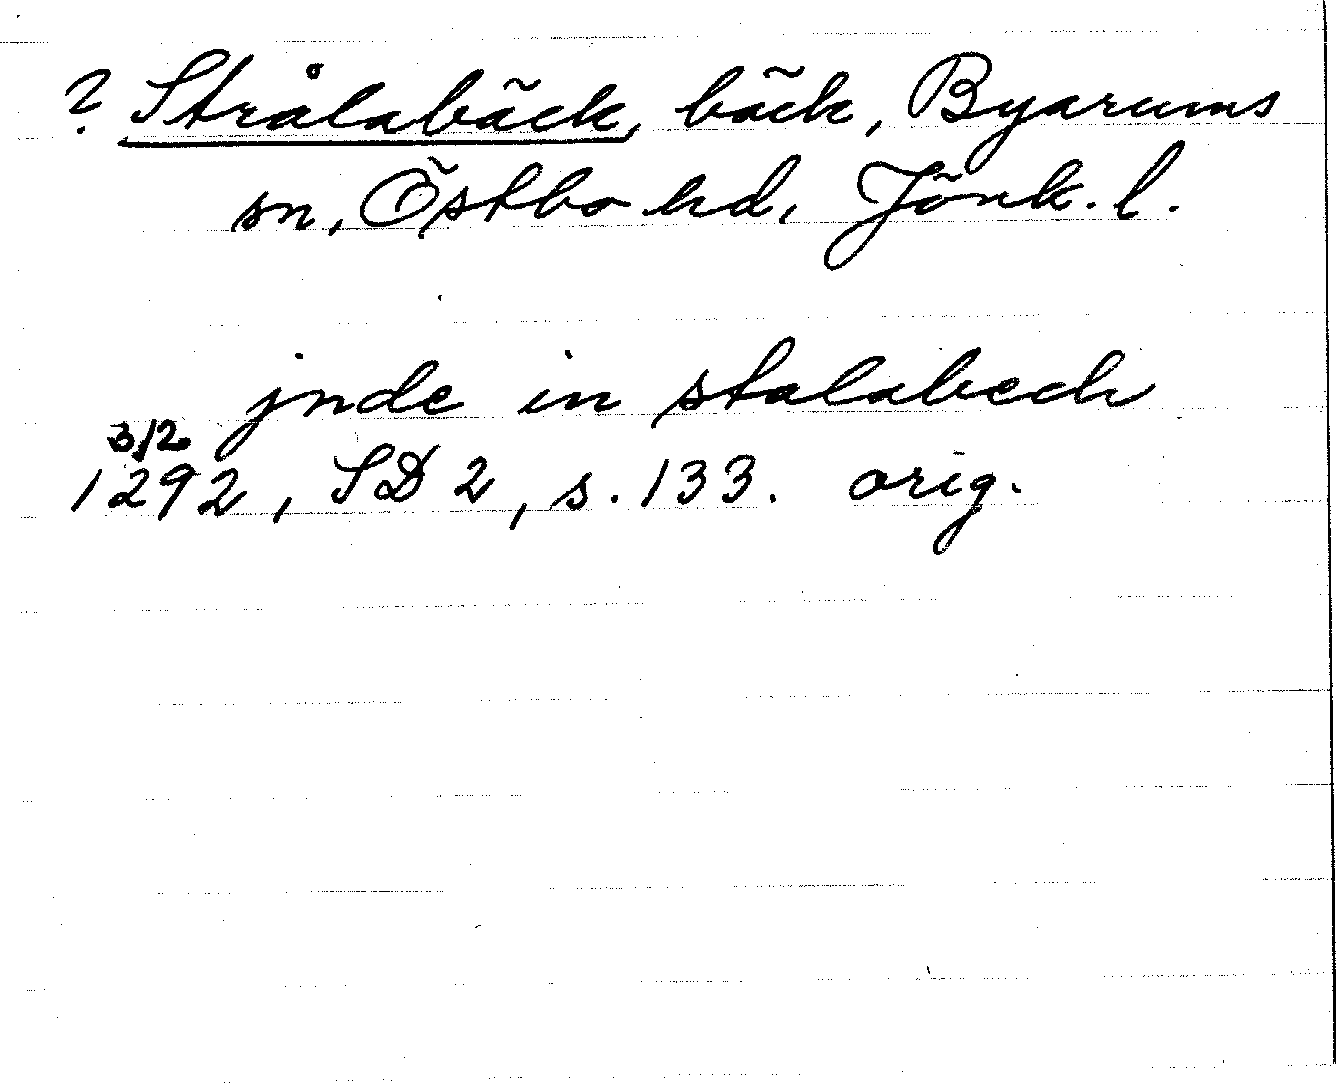 ? Strålabäck, bäck, Byarums
sn, Östbo hd, Jönk. l.
jnde in stalabech
3/2
1292, SD 2, s. 133. orig.